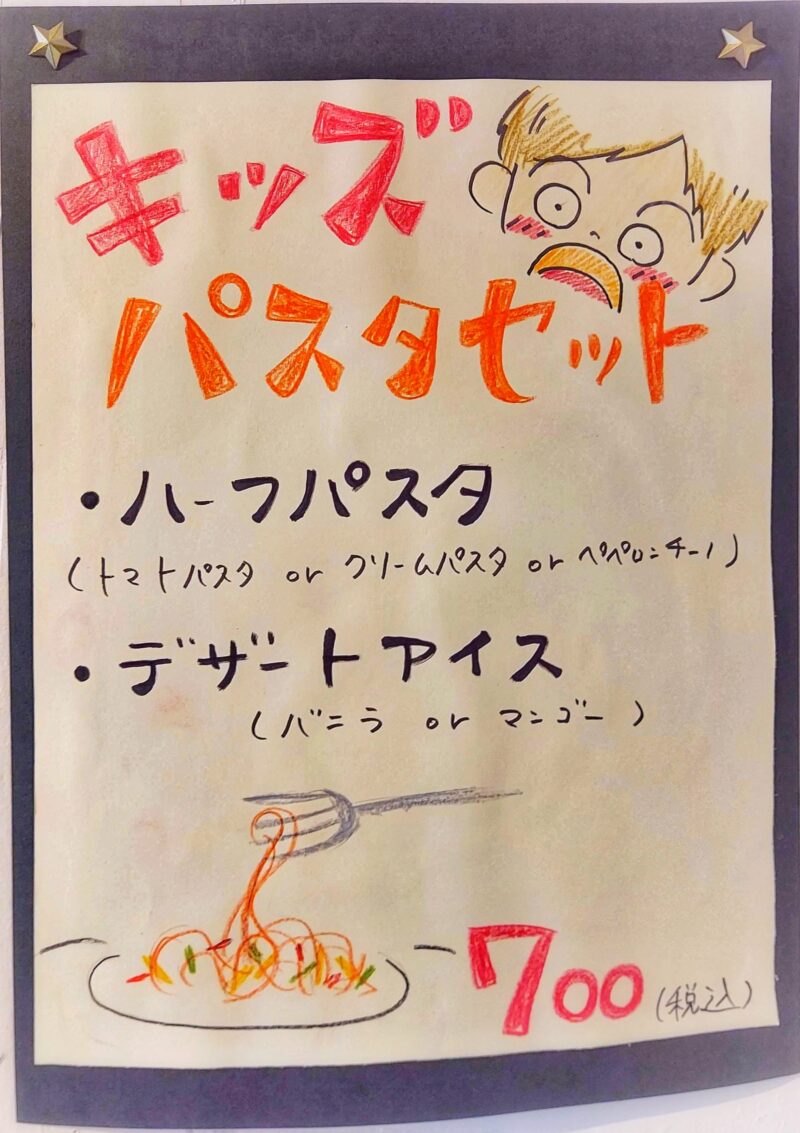 キッズ
パスタセット
・ハーフパスタ
(トマトパスタ or クリームパスタ or ペペロンチーノ)
・デザートアイス
(バニラ or マンゴー)
700(税込)